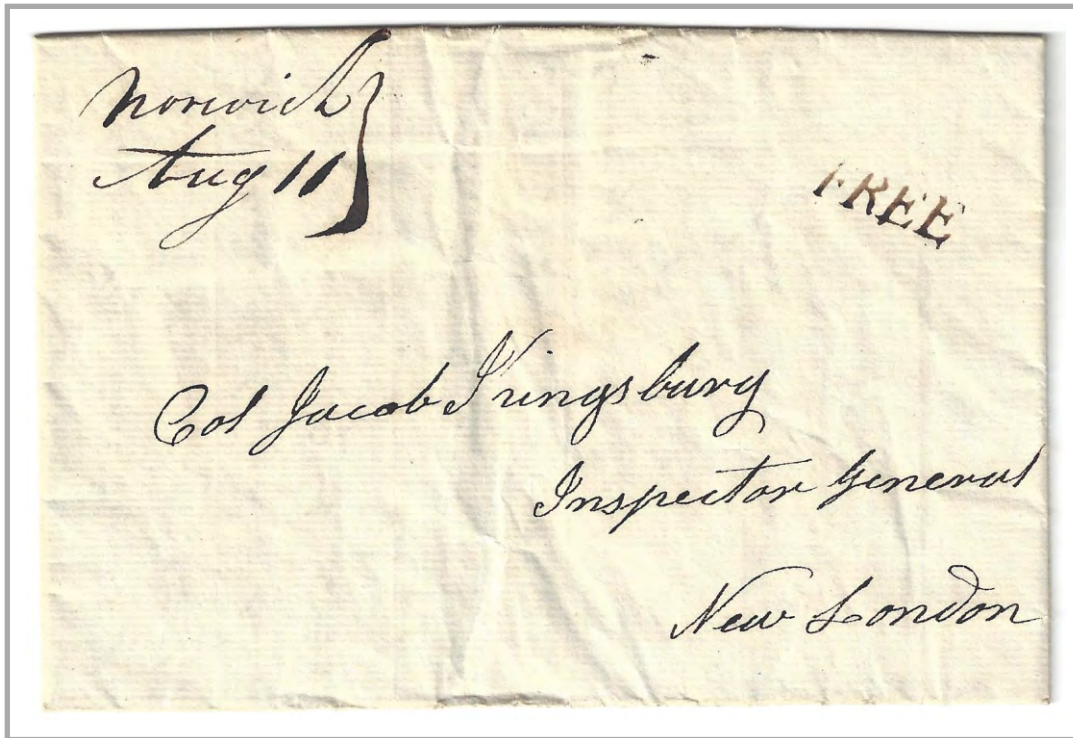 Norwich
Aug 11
FREE
Col Jacob Kingsbury
Inspector General
New London